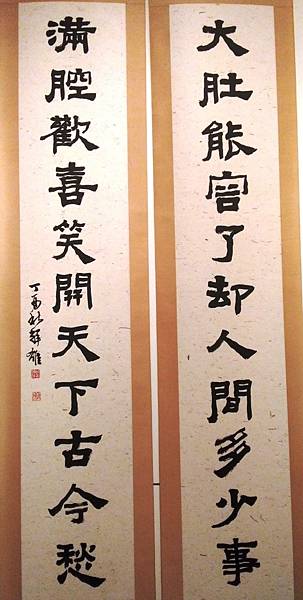 大肚能容了却人間多少事
滿腔歡喜笑開天下古今愁
丁酉秋舜雄